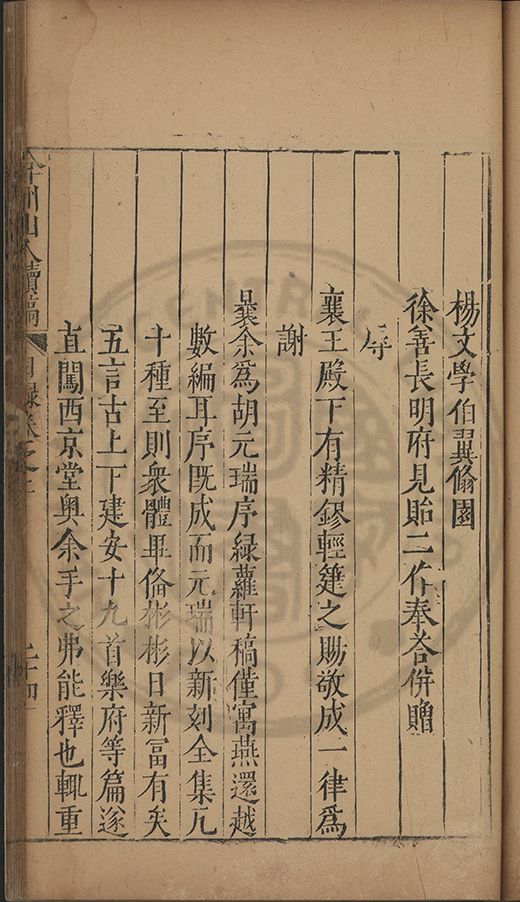 楊文學伯翼脩園
徐善長明府見貽二作奉荅併贈
辱
襄王殿下有精鏐輕箑之賜敬成一律爲
謝
曩余爲胡元瑞序綠蘿軒稿僅寓燕還越
數編耳序既成而元瑞以新刻全集凡
十種至則衆體畢偹彬彬日新富有矣
五言古上下建安十九首樂府等篇遂
直闖西京堂奧余手之弗能釋也輒重
弇州山人續稿 目錄卷之二 二十四